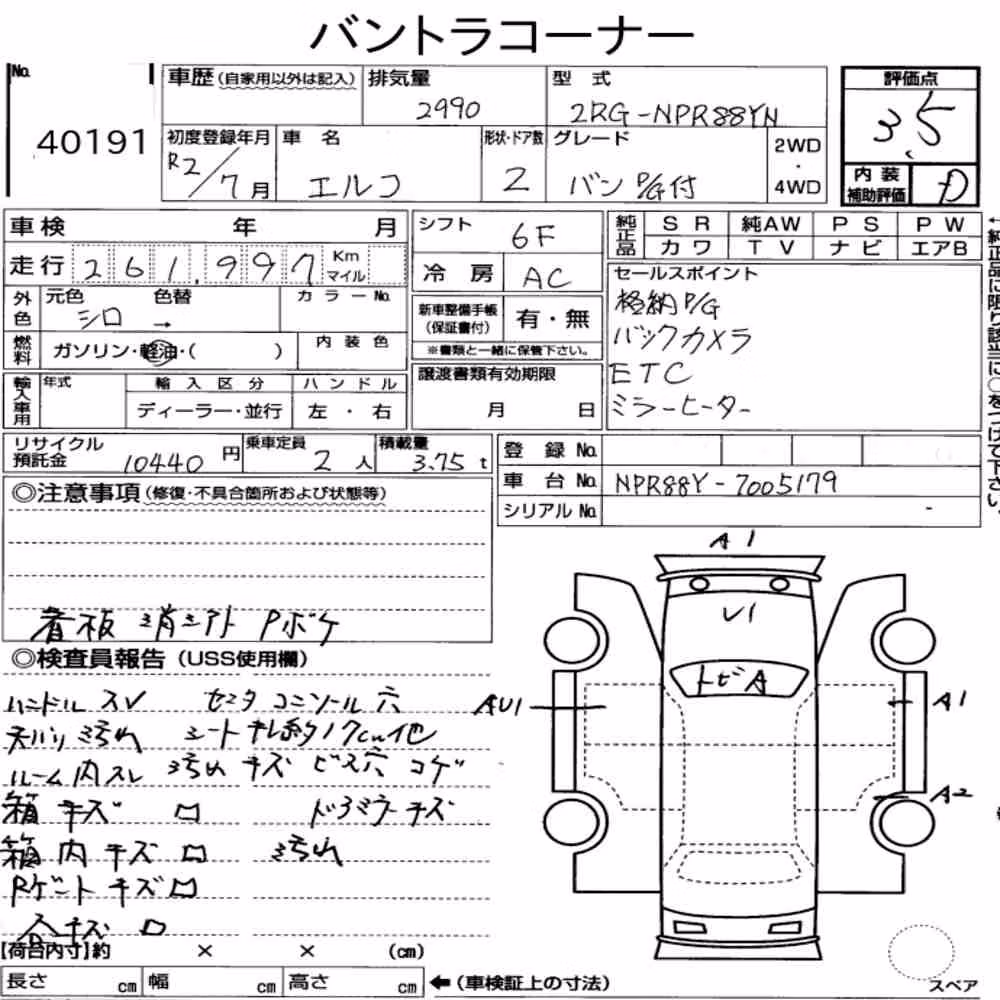 バントラコーナー
No.
40191
車歴（自家用以外は記入）
排気量
2990
型式
2RG-NPR88YN
評価点
3.5
初度登録年月
R2/7月
車名
エルフ
形状・ドア数
2
グレード
バン P/G付
2WD
・
4WD
内装
補助評価
D
車検 年 月
シフト
6F
純正品
SR 純AW PS PW
カワ TV ナビ エアB
走行 261,997 Km
マイル
冷房
AC
セールスポイント
格納P/G
バックカメラ
ETC
ミラーヒーター
外色
元色 色替 カラーNo.
シロ →
新車整備手帳
（保証書付）
有・無
※書類と一緒に保管下さい。
燃料
ガソリン・軽油・（ ）
内装色
輸入車用
年式 輸入区分 ハンドル
ディーラー・並行 左・右
譲渡書類有効期限
月 日
←純正品に限り該当に○をつけて下さい。
リサイクル
預託金
10440円
乗車定員
2人
積載量
3.75t
登録No.
車台No.
NPR88Y-7005179
シリアルNo.
-
◎注意事項（修復・不具合箇所および状態等）
看板消シアト Pボケ
◎検査員報告（USS使用欄）
ハンドルスレ センタコンソール穴
天バリ汚れ シートキレ約17cm他
ルーム内スレ 汚れ キズ ビス穴 コゲ
箱キズ凹 ドアミラーキズ
箱内キズ凹 汚れ
Rゲートキズ凹
合キズ凹
【荷台内寸】約 × × （cm）
長さ cm 幅 cm 高さ cm
←（車検証上の寸法）
A1
U1
トビA
AU1
A1
A2
スペア